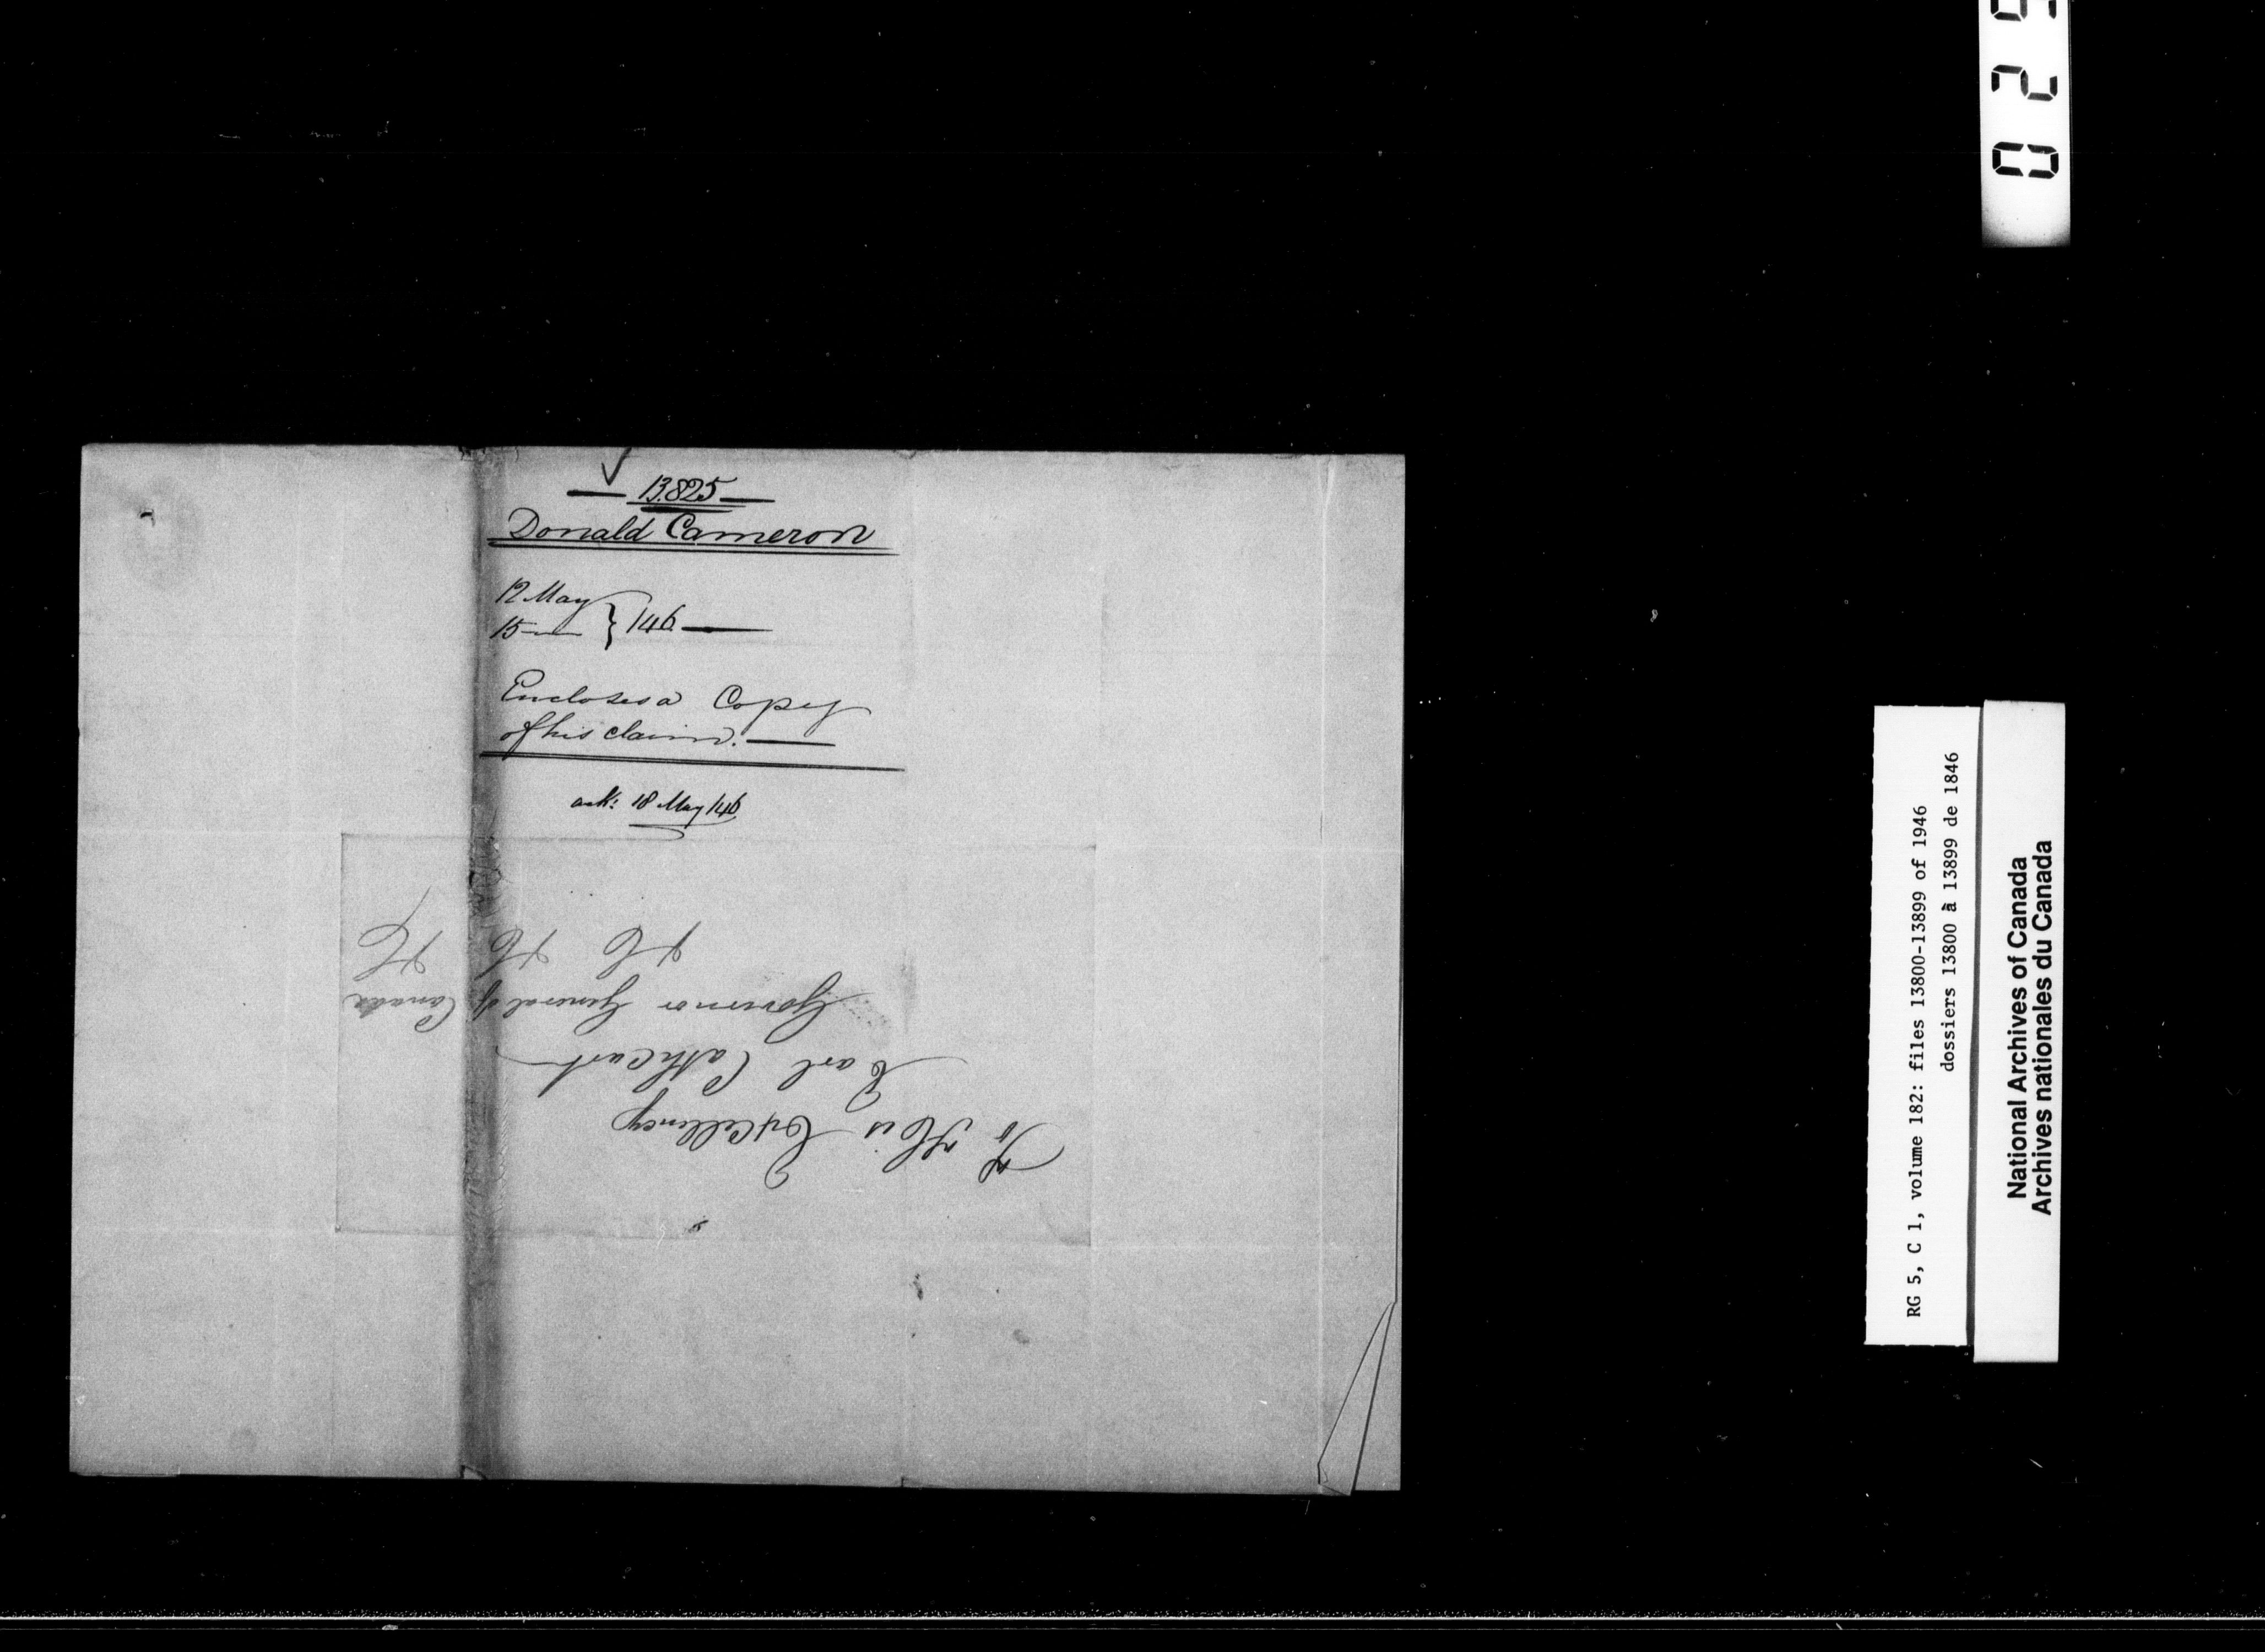 13.825
Donald Cameron
12 May
15 — } /46
Encloses a Copy
of his claim.
ack: 18 May /46
To His Excellency
Earl Cathcart
Governor General of Canada
&c &c &c
RG 5, C 1, volume 182: files 13800-13899 of 1946
dossiers 13800 à 13899 de 1846
National Archives of Canada
Archives nationales du Canada